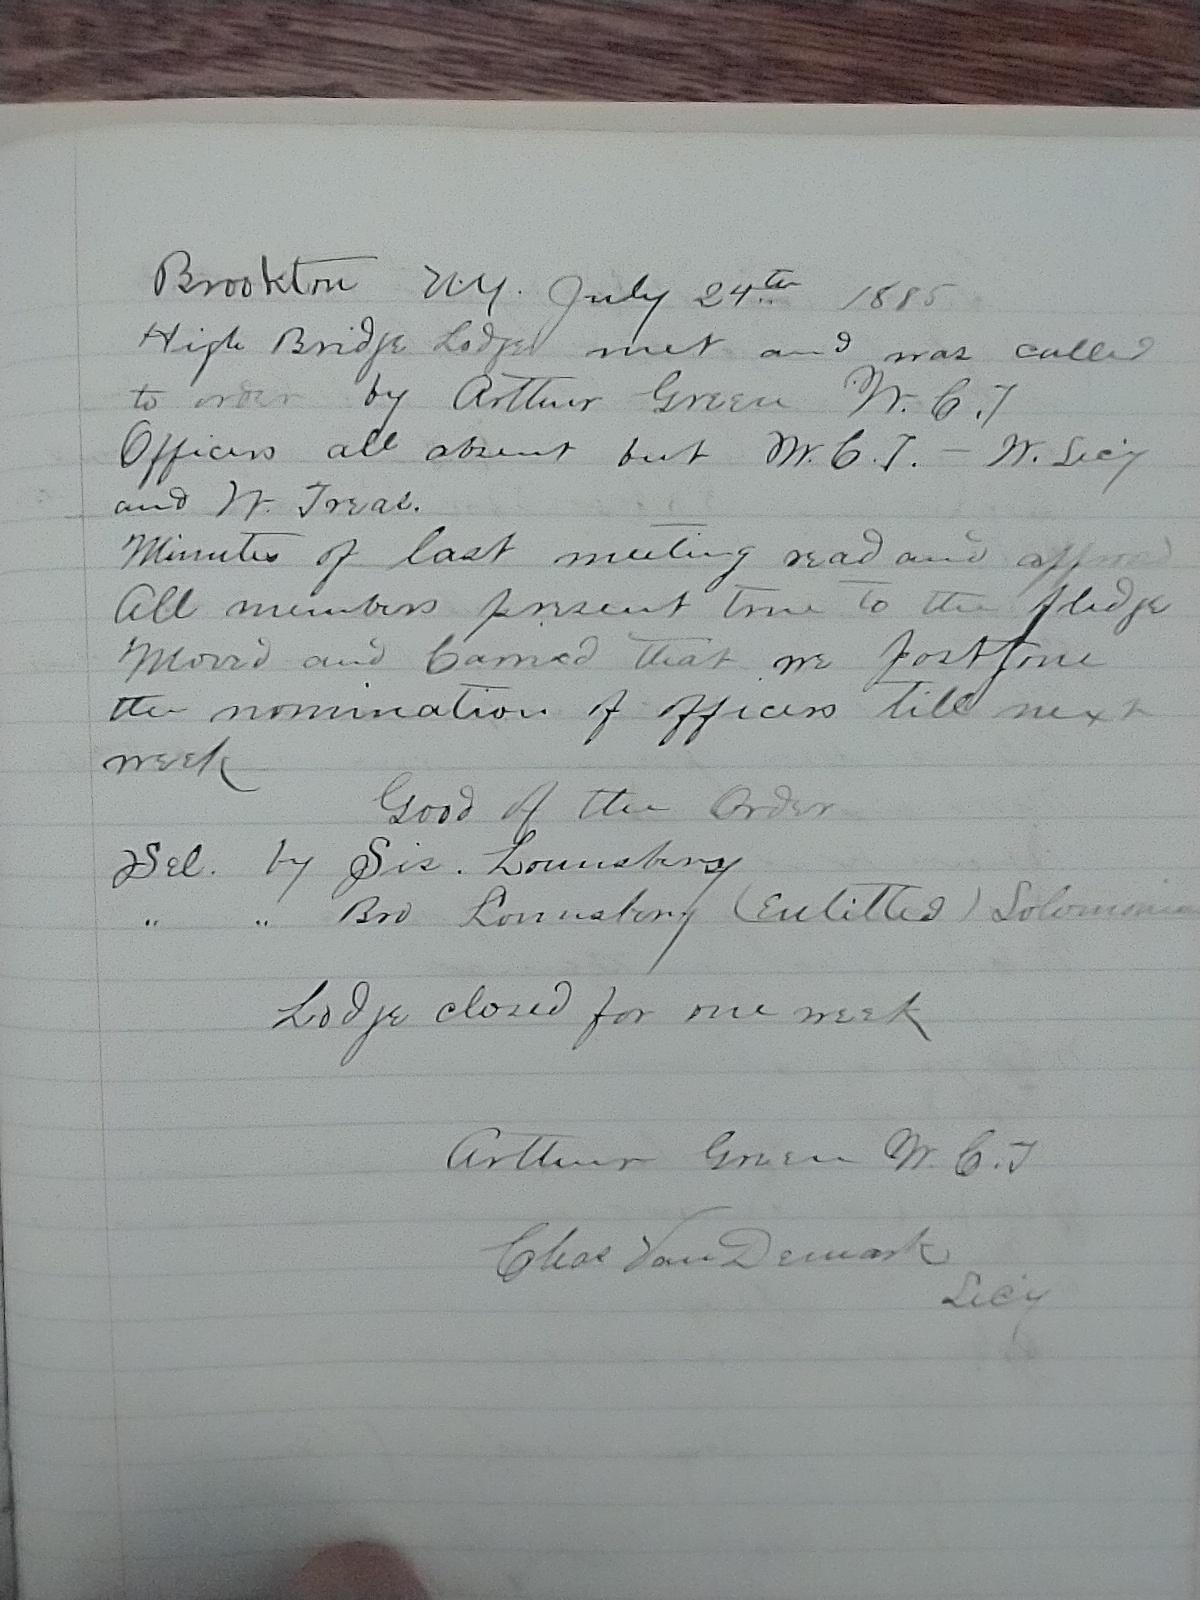 Brookton N.Y. July 24th 1885
High Bridge Lodge met and was called
to order by Arthur Green W.C.T
Officers all absent but W.C.T. - W. Secy
and W. Treas.
Minutes of last meeting read and approved
All members present true to the pledge
Moved and Carried that we postpone
the nomination of officers till next
week
Good of the Order
Sel. by Sis. Lounsbery
" " Bro Lounsbery (Entitled)
Lodge closed for one week
Arthur Green W.C.T
Chas Van Demark
Secy